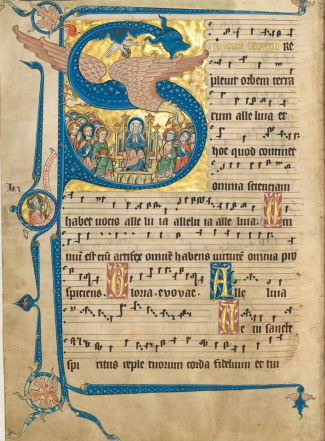 RE
pleuit orbem terra
rum alle luia et
hoc quod continet
omnia scientiam
habet uocis alle lu ia alleluia alle luia. Om
nium est enim artifex omnem habens uirtutem omnia pro
spiciens. Gloria. evovae. Alle luia
Ve ni sancte
spi ritus reple tuorum corda fidelium et tui